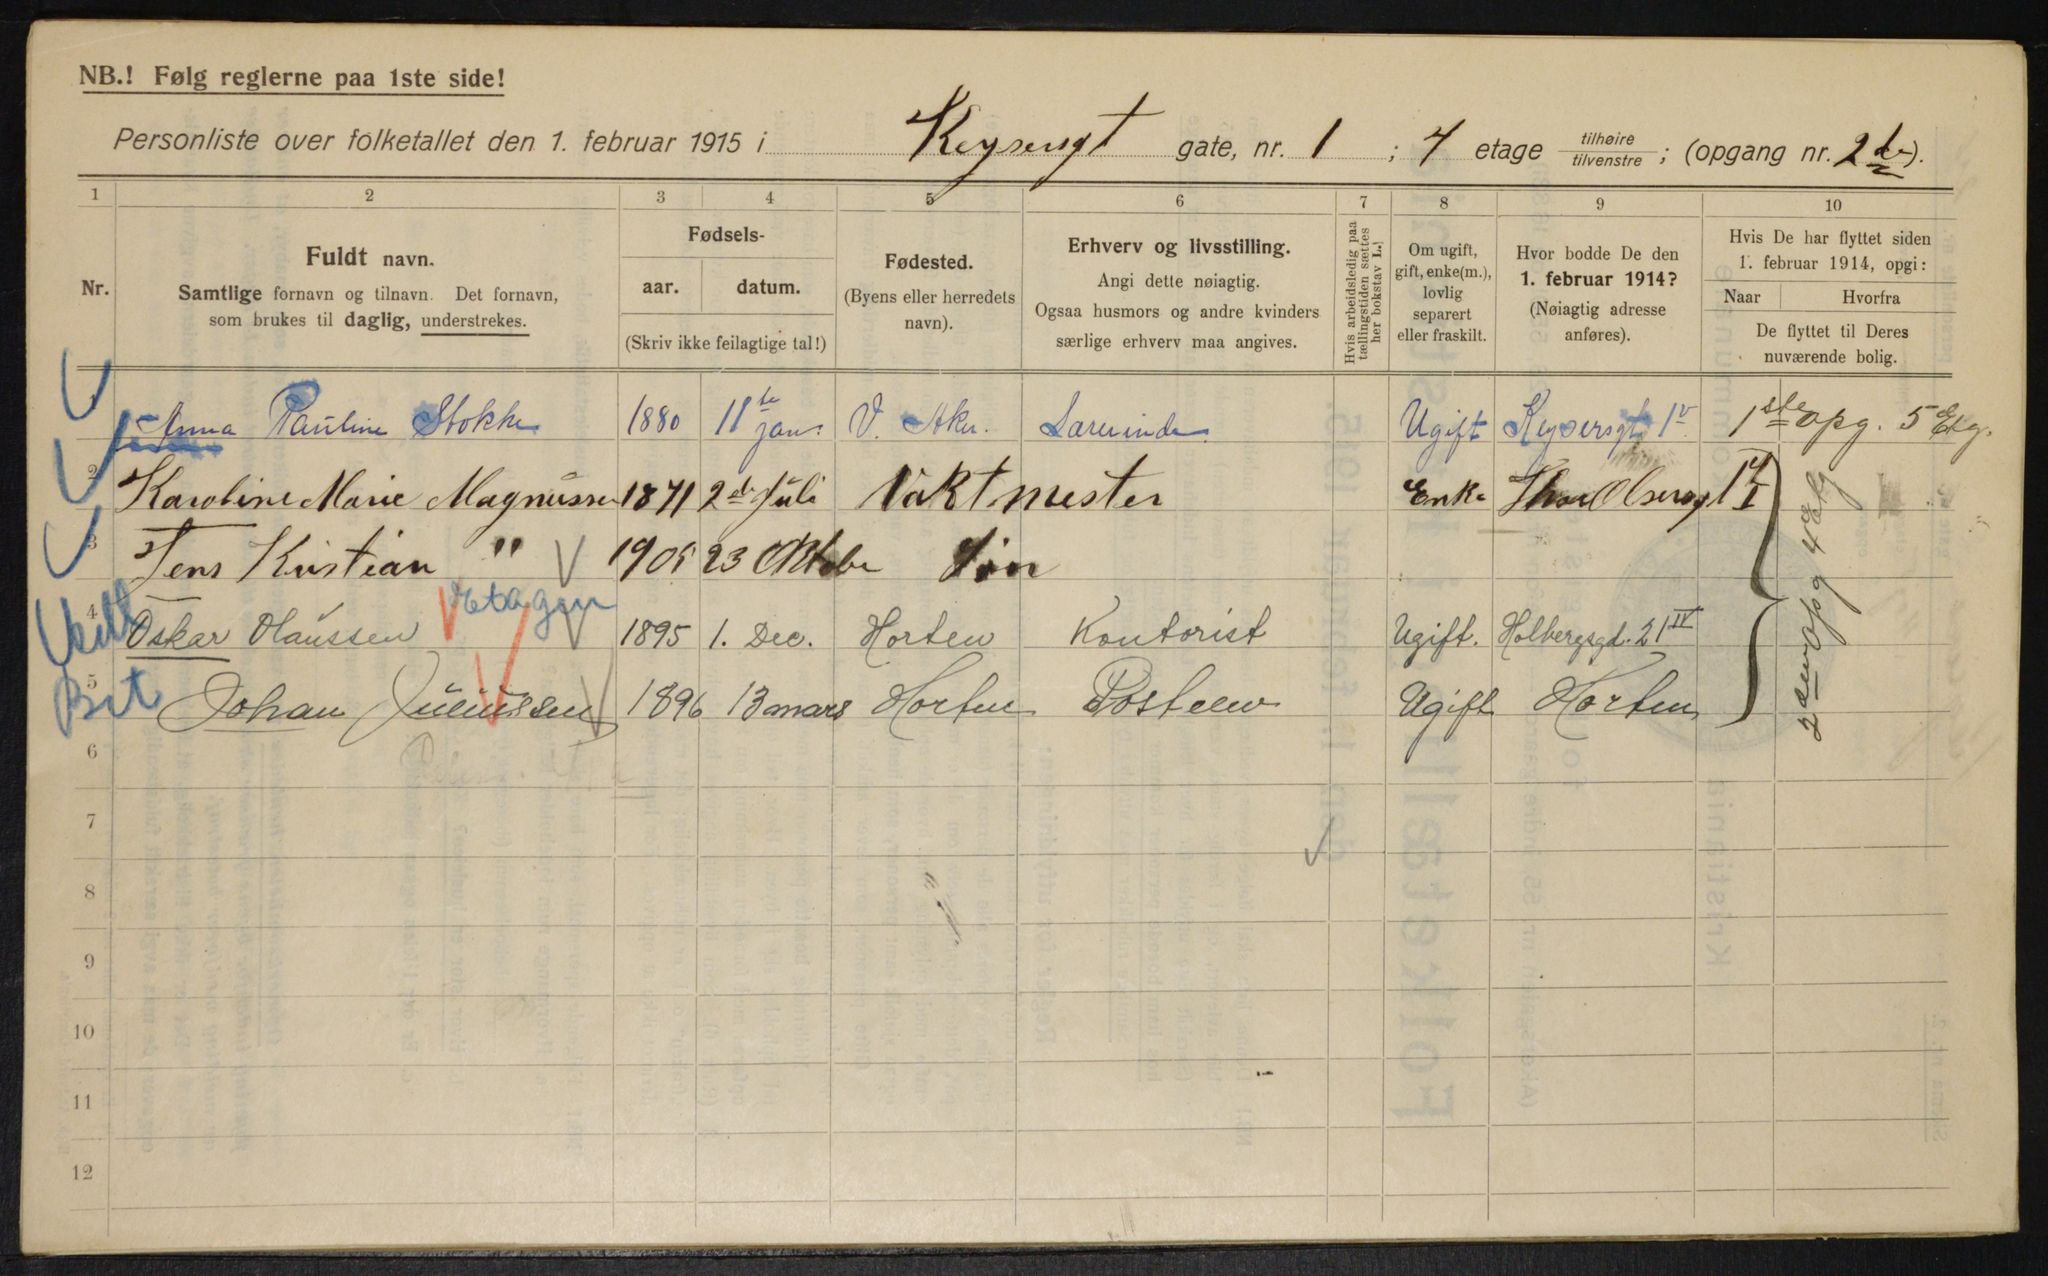 NB.! Følg reglerne paa 1ste side!
Personliste over folketallet den 1. februar 1915 i Keysersgt gate, nr. 1 ; 4 etage tilhøire/tilvenstre ; (opgang nr. 2de).
1 2 3 4 5 6 7 8 9 10
Nr.
Fuldt navn.
Samtlige fornavn og tilnavn. Det fornavn,
som brukes til daglig, understrekes.
Fødsels-
aar. datum.
(Skriv ikke feilagtige tal!)
Fødested.
(Byens eller herredets
navn).
Erhverv og livsstilling.
Angi dette nøiagtig.
Ogsaa husmors og andre kvinders
særlige erhverv maa angives.
Hvis arbeidsledig paa
tællingstiden sættes
her bokstav L.
Om ugift,
gift, enke(m.),
lovlig
separert
eller fraskilt.
Hvor bodde De den
1. februar 1914?
(Nøiagtig adresse
anføres).
Hvis De har flyttet siden
1. februar 1914, opgi:
Naar Hvorfra
De flyttet til Deres
nuværende bolig.
1 Anna Pauline Stokke 1880 11te jan. V. Aker. Lærerinde. Ugift Keysersgt 1 V 1ste opg. 5 Etg.
2 Karoline Marie Magnussen 1871 2de Juli Vaktmester Enke Thor Olsensgt 1 I
3 Jens Kristian " 1905 23 Oktobe Søn
etagen
4 Oskar Olaussen 1895 1. Dec. Horten Kontorist Ugift. Holbergsgd. 21 IV
5 Johan Juliussen 1896 13 mars Horten Postelev Ugift Horten
2den opg 4 Etg
6
7
8
9
10
11
12